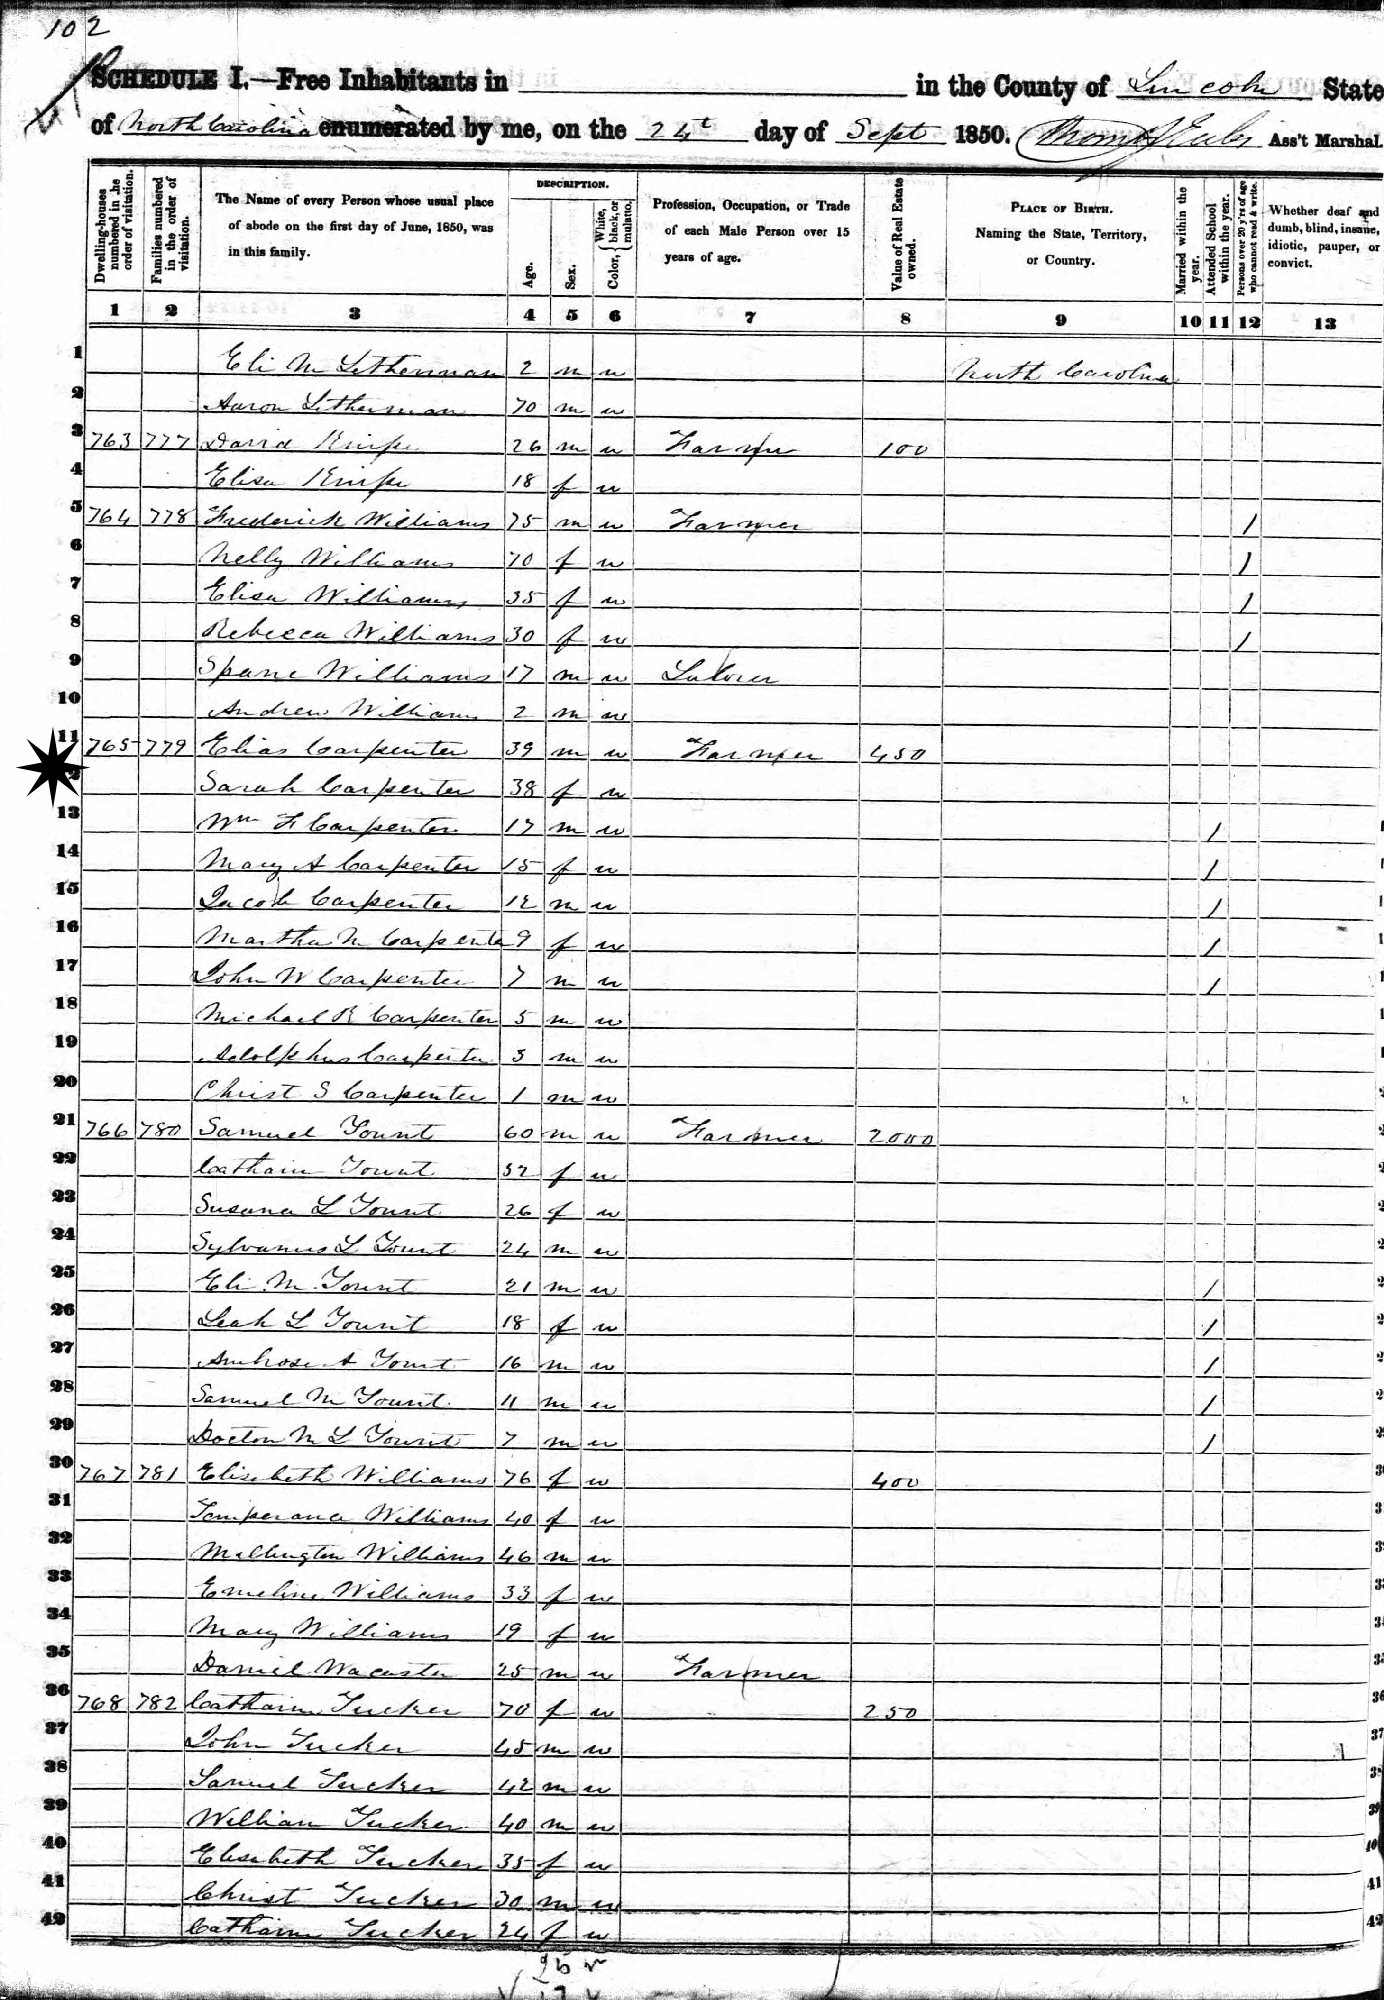 102
SCHEDULE I.—Free Inhabitants in in the County of Lincoln State
of North Carolina enumerated by me, on the 24t day of Sept 1850. Ass't Marshal.
Dwelling-houses numbered in the order of visitation.
Families numbered in the order of visitation.
The Name of every Person whose usual place of abode on the first day of June, 1850, was in this family.
DESCRIPTION.
Age.
Sex.
Color, White, black, or mulatto.
Profession, Occupation, or Trade of each Male Person over 15 years of age.
Value of Real Estate owned.
PLACE OF BIRTH. Naming the State, Territory, or Country.
Married within the year.
Attended School within the year.
Persons over 20 y'rs of age who cannot read & write.
Whether deaf and dumb, blind, insane, idiotic, pauper, or convict.
1 2 3 4 5 6 7 8 9 10 11 12 13
1 Eli M Letherman 2 m w North Carolina
2 Aaron Letherman 70 m w
3 763 777 David 26 m w Farmer 100
4 Elisa 18 f w
5 764 778 Frederick Williams 75 m w Farmer /
6 Nelly Williams 70 f w /
7 Elisa Williams 35 f w /
8 Rebecca Williams 30 f w /
9 Williams 17 m w Laborer
10 Andrew Williams 2 m w
11 765 779 Elias Carpenter 39 m w Farmer 450
12 Sarah Carpenter 38 f w
13 Wm F Carpenter 17 m w /
14 Mary A Carpenter 15 f w /
15 Jacob Carpenter 12 m w /
16 Martha M Carpenter 9 f w /
17 John W Carpenter 7 m w /
18 Michael R Carpenter 5 m w
19 Adolphus Carpenter 3 m w
20 Christ S Carpenter 1 m w
21 766 780 Samuel Yount 60 m w Farmer 2000
22 Catharin Yount 52 f w
23 Susana L Yount 26 f w
24 Sylvanus L Yount 24 m w
25 Eli M Yount 21 m w /
26 Leah L Yount 18 f w /
27 Ambrose A Yount 16 m w /
28 Samuel M Yount 11 m w /
29 Docton M L Yount 7 m w /
30 767 781 Elisebeth Williams 76 f w 400
31 Temperance Williams 40 f w
32 Millington Williams 46 m w
33 Emeline Williams 33 f w
34 Mary Williams 19 f w
35 Daniel Wacaster 25 m w Farmer
36 768 782 Catharin Tucker 70 f w 250
37 John Tucker 45 m w
38 Samuel Tucker 42 m w
39 William Tucker 40 m w
40 Elisabeth Tucker 35 f w
41 Christ Tucker 30 m w
42 Catharin Tucker 24 f w